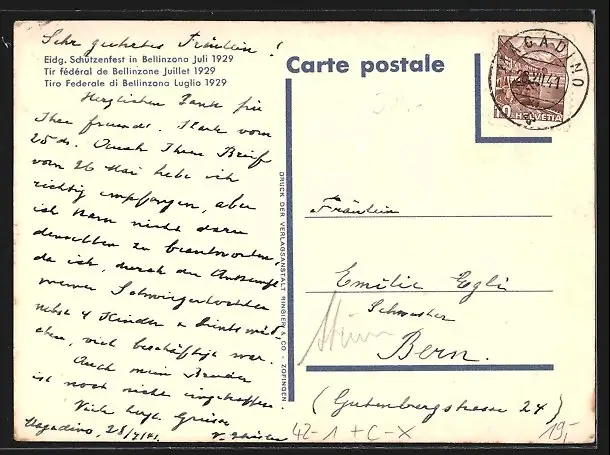 Sehr geehrtes Fräulein!
Eidg. Schützenfest in Bellinzona Juli 1929
Tir fédéral de Bellinzone Juillet 1929
Tiro Federale di Bellinzona Luglio 1929
Herzlichen Dank für
Ihre freundl. Karte vom
25 ds. Auch Ihren Brief
vom 26 Mai habe ich
richtig empfangen, aber
ich kam nicht dazu
denselben zu beantworten,
da ich, durch die
meiner Schwiegertochter
nebst 4 Kinder
viel beschäftigt war.
Auch mein Bruder
ist noch nicht eingetroffen.
Viele herzl. Grüsse
Magadino, 28/7/41.
DRUCK DER VERLAGSANSTALT RINGIER & CO. - ZOFINGEN
Carte postale
GADINO
28.VII.41
10 HELVETIA
Fräulein
Emilie Egli
Schwester
Bern.
(Gutenbergstrasse 24)
42-1+C-X
19,-